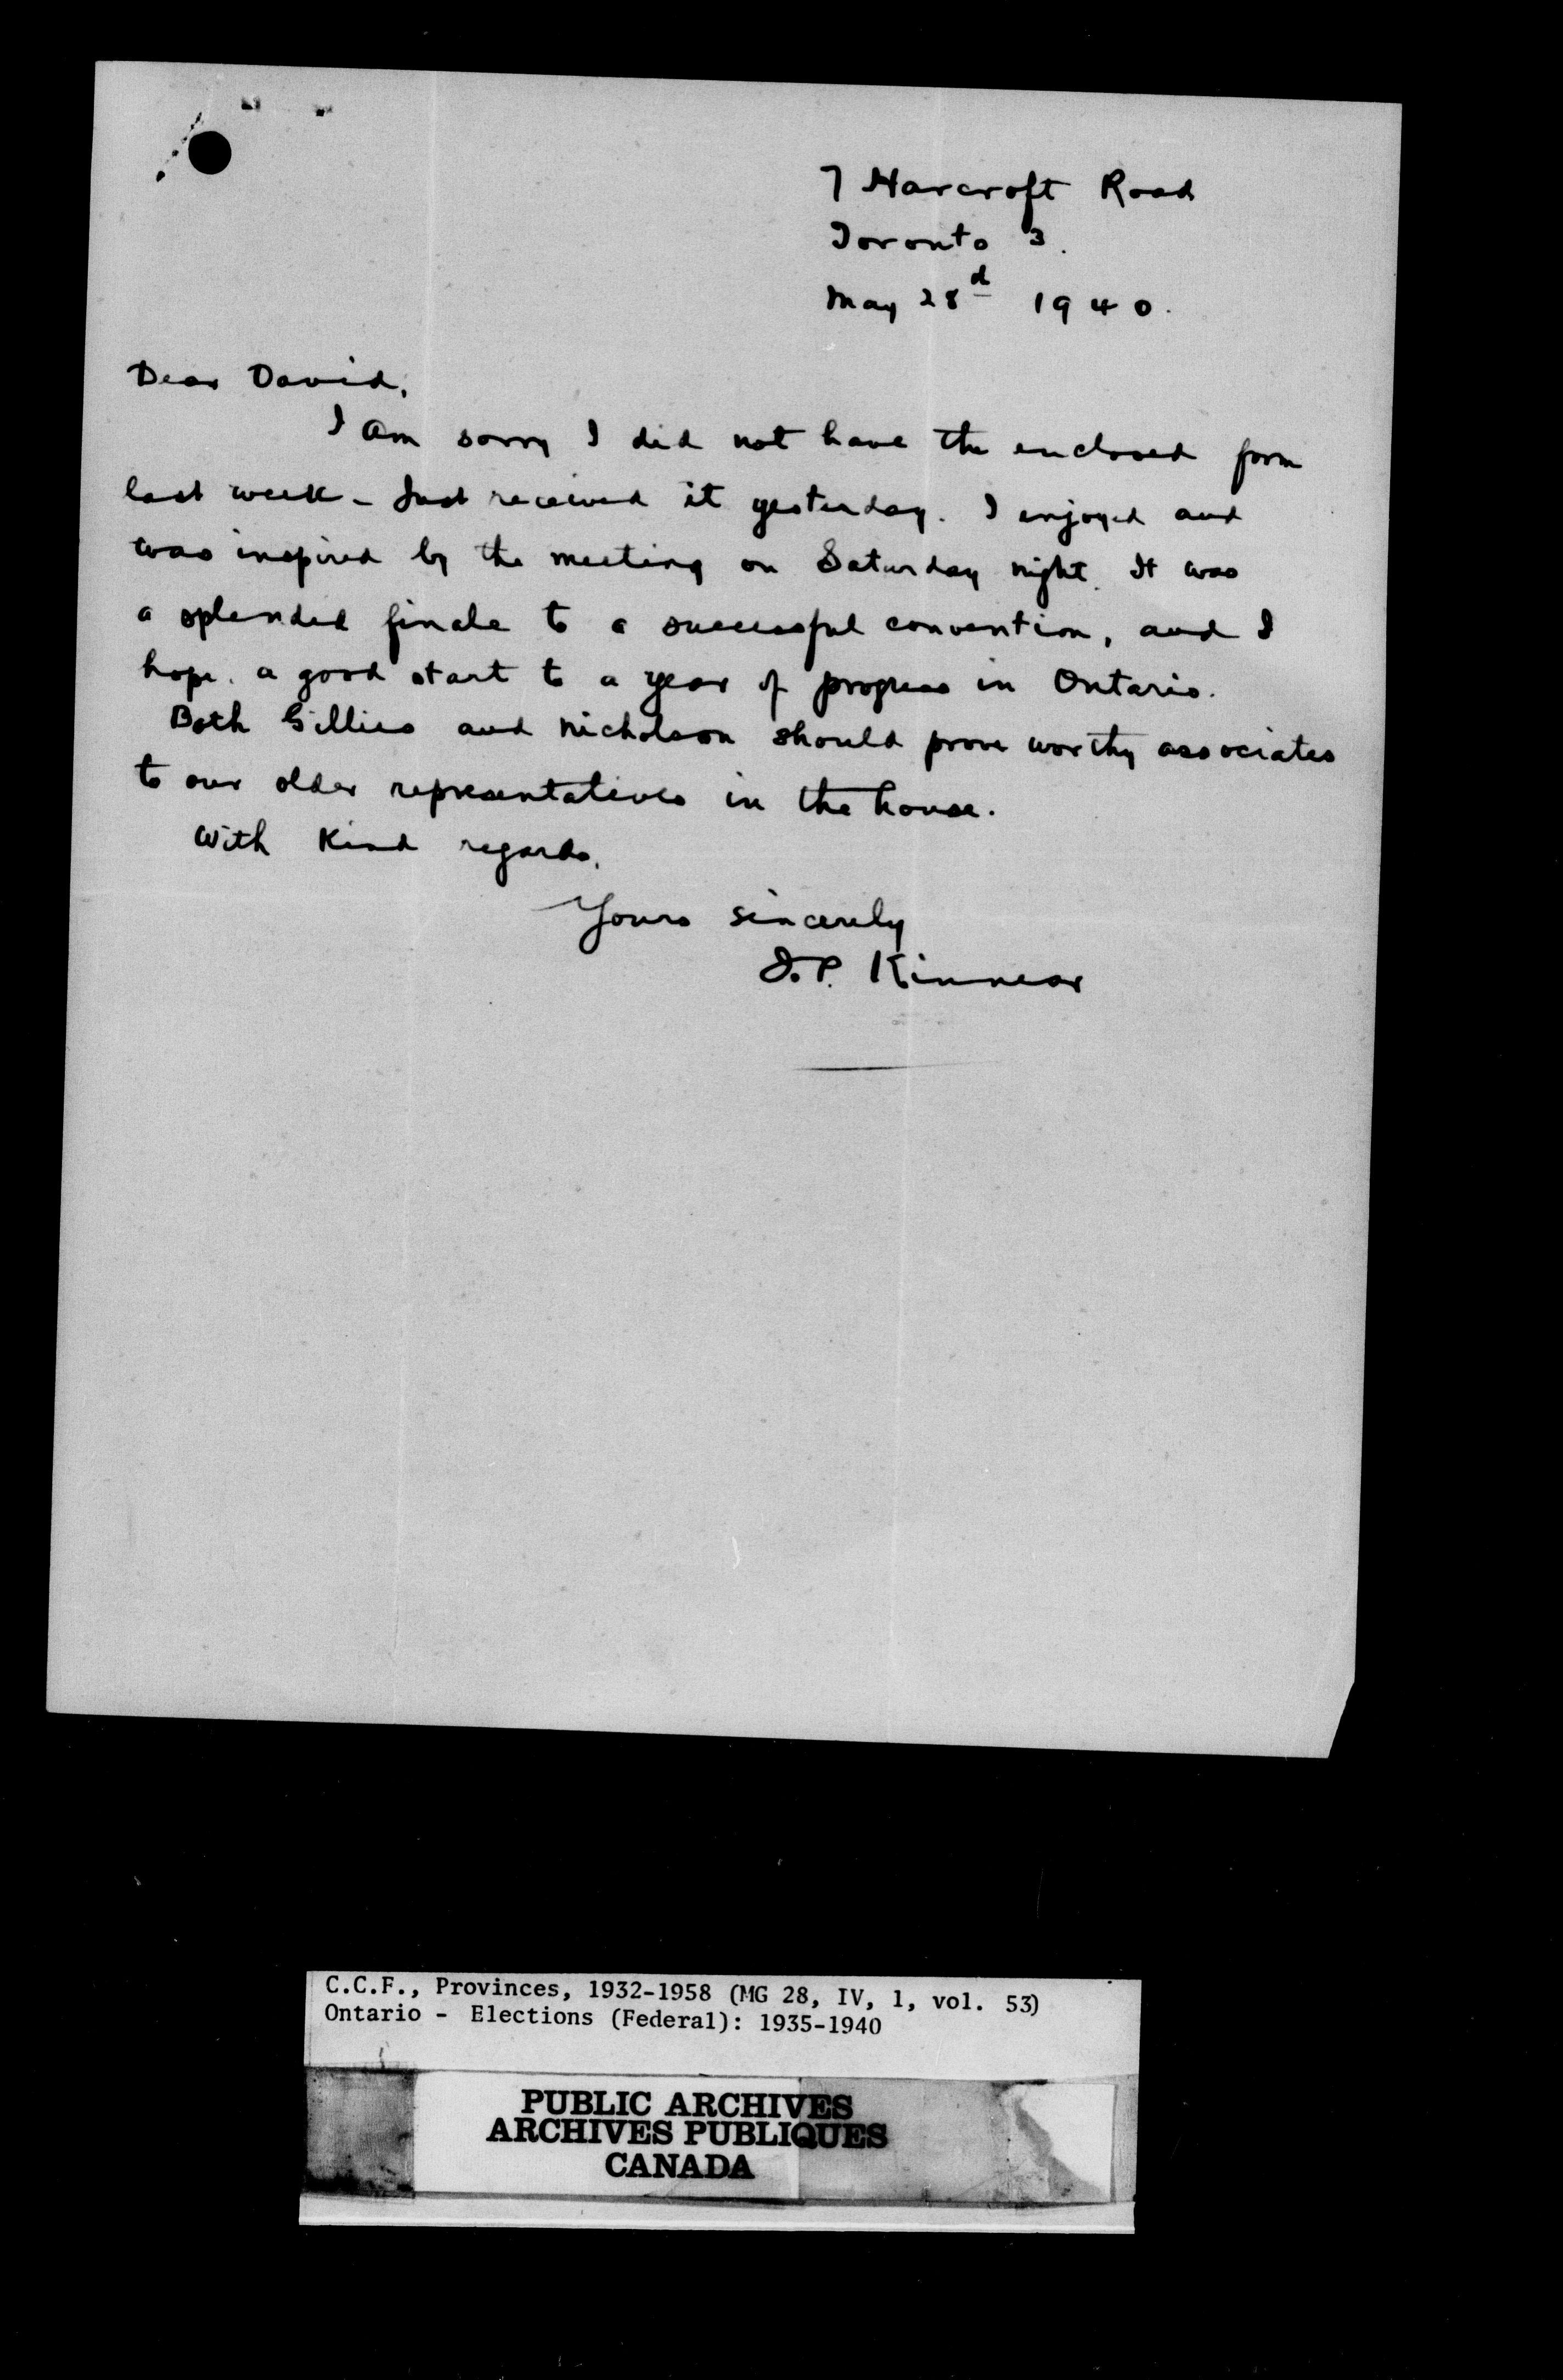 7 Harcroft Road
Toronto 3.
May 28d 1940.
Dear David,
I am sorry I did not have the enclosed form
last week - Just received it yesterday. I enjoyed and
was inspired by the meeting on Saturday night. It was
a splendid finale to a successful convention, and I
hope. a good start to a year of progress in Ontario.
Both Gillies and Nicholson should prove worthy associates
to our older representatives in the house.
With Kind regards,
Yours sincerely
Kinnear
C.C.F., Provinces, 1932-1958 (MG 28, IV, 1, vol. 53)
Ontario - Elections (Federal): 1935-1940
PUBLIC ARCHIVES
ARCHIVES PUBLIQUES
CANADA